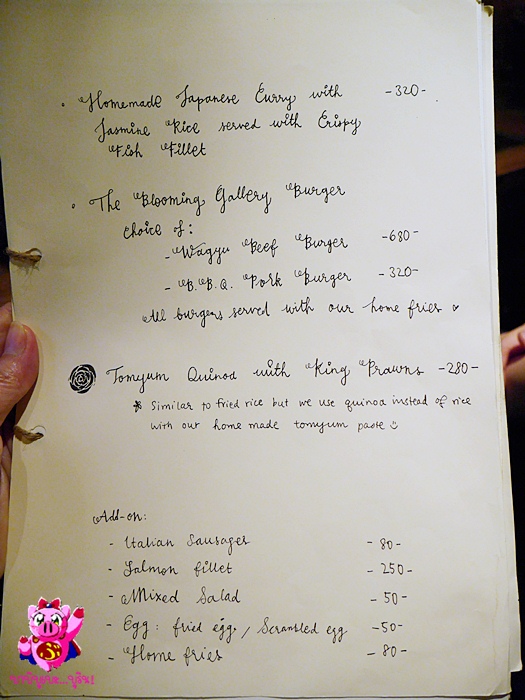 • Homemade Japanese Curry with -320-
Jasmine Rice served with Crispy
Fish Fillet
• The Blooming Gallery Burger
choice of:
- Wagyu Beef Burger -680-
- B.B.Q. Pork Burger -320-
All burgers served with our home fries
Tomyum Quinoa with King Prawns -280-
* Similar to fried rice but we use quinoa instead of rice
with our home made tomyum paste ☺
Add-on:
- Italian Sausages -80-
- Salmon fillet -250-
- Mixed Salad -50-
- Egg: fried egg / Scrambled egg -50-
- Home fries -80-